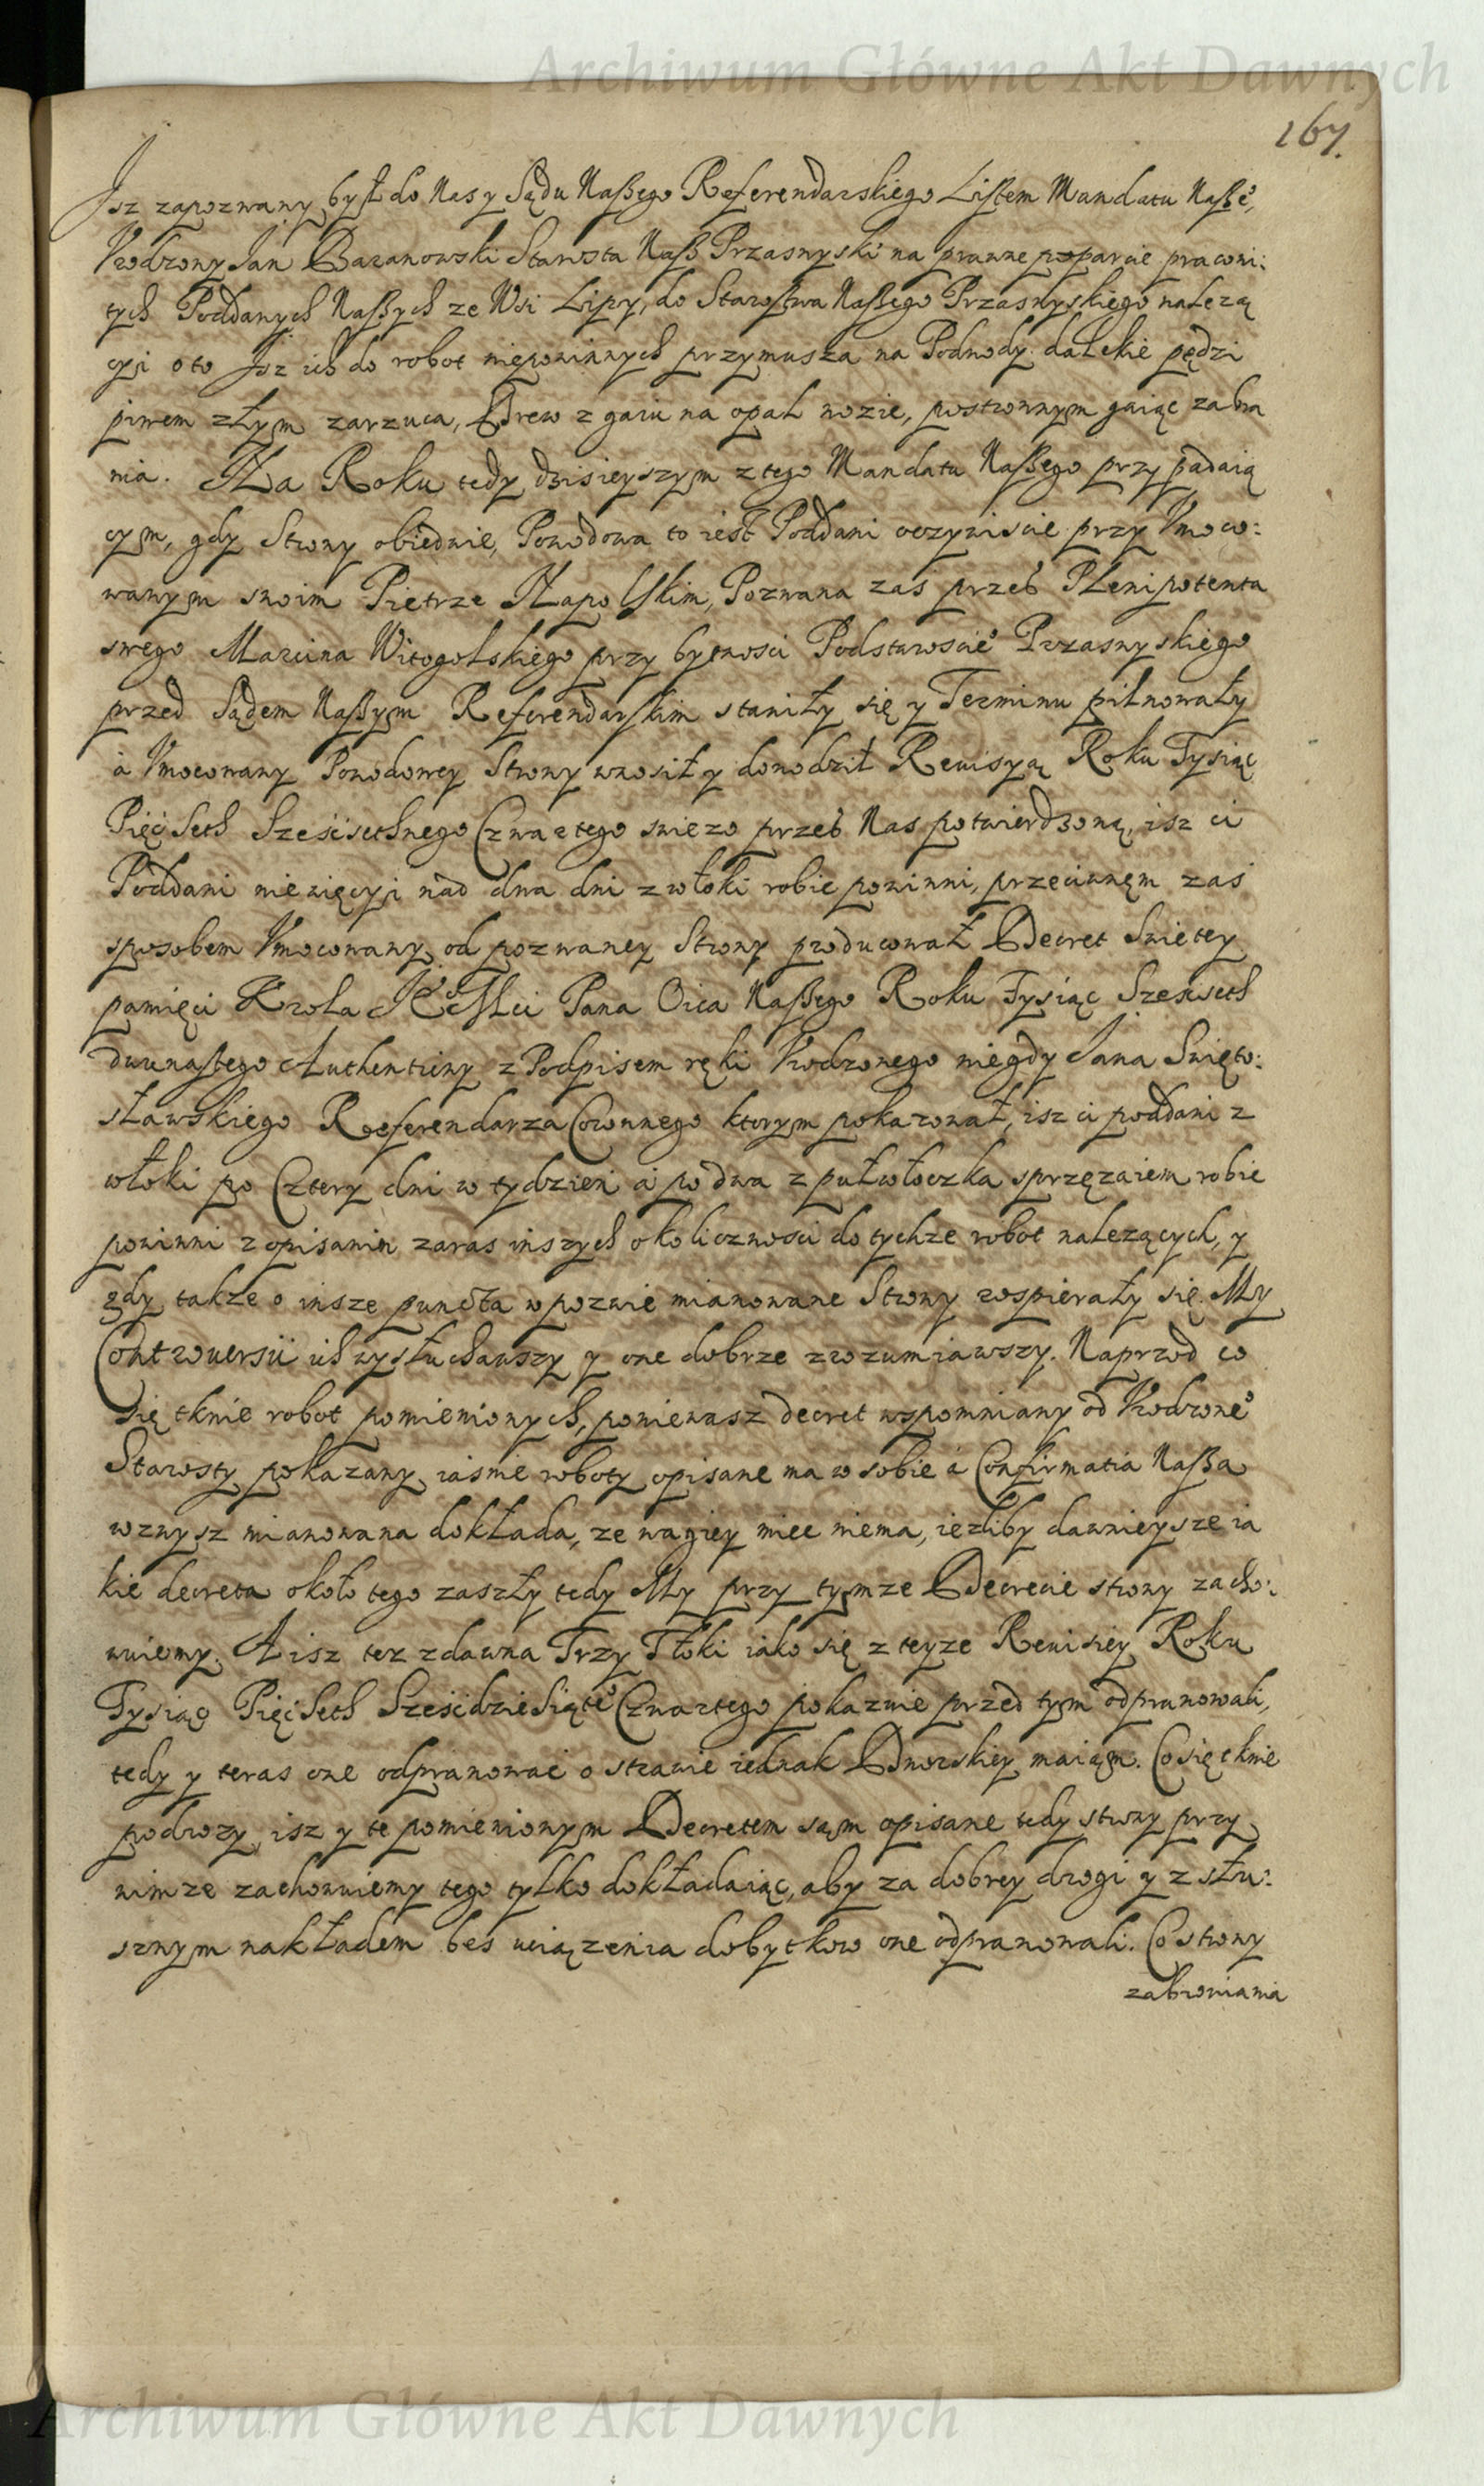 Archiwum Główne Akt Dawnych
167.
Isz zapozwany był do Nas y Sądu Naßego Referendarskiego Listem Mandatu Naßeº,
Vrodzony Jan Baranowski Starosta Naß Przasnyski na prawne poparcie pracowi:
tych Poddanych Naßych ze Wsi Lipy, do Starostwa Naßego Przasnyskiego nalezą
cyi oto Isz ich do robot niepowinnych przymusza na Podwody dalekie pędzi
piwem złym zarzuca, Drew z gaiu na opał wozic, postronnym gaiąc zabra
nia. Na Roku tedy dzisieyszym z tego Mandatu Naßego przypadaią
cym, gdy Strony obiedwie, Powodowa to iest Poddani oczywiscie przy Vmoco:
wanym swoim Pietrze Napolskim, Pozwana zaś przeb Plenipotenta
swego Marcina Witogolskiego przy bytnosci Podstaroscieº Przasnyskiego
przed Sądem Naßym Referendarskim staniły się y Terminu pilnowały
á Vmocowany Powodowey Strony wnosił y dowodził Rewisyą Roku Tysiąc
Pięć Seth Sześćsethnego Czwartego swiezo przeb Nas potwierdzoną, isz ci
Poddani niewięcyi nad dwa dni z włoki robic powinni, przeciwnęm zas
sposobem Vmocowany od pozwaney Strony producował Decret Swietey
pamięci Krola JEº Mci Pana Oica Naßego Roku Tysiąc Sześcseth
dwunastego Authenticny z Podpisem ręki Vrodzonego niegdy Jana Swięto:
sławskiego Referendarza Coronnego ktorym pokazował, isz ci poddani z
włoki po Cztery dni w tydzien á po dwa z pułwłoczka sprzęzaiem robic
powinni z opisanim zaras inszych okolicznosci do tychze robot nalezących, y
gdy takze o insze puncta w pozwie mianowane Strony rospierały się. My
Controuersii ich wysłuchawszy y one dobrze zrozumiawszy. Naprzod co
się tknie robot pomienionych, poniewasz decret wspomniany od Vrodzoneº
Starosty pokazany iasnie roboty opisane ma w sobie á Confirmatia Naßa
wzwysz mianowana dokłada, ze wagiey miec niema, iezliby dawnieysze ia
kie decreta około tego zaszły tedy My przy tymze Decrecie strony zacho:
wuiemy. A isz tez zdawna Trzy Tłoki iako się z teyze Rewisiey Roku
Tysiąc Pięć Seth Sześćdziesiąteº Czwartego pokazuie przed tym odprawowali,
tedy y teras one odprawowac o strawie iednak Dworskiey maiąm. Co się tknie
podrozy, isz y te pomienionym Decretem sąm opisane tedy strony przy
nimze zachowuiemy tego tylko dokładaiąc, aby za dobrey drogi y z słu:
sznym nakładem bes uciązenia dobytkow one odprawowali. Co strony
zabraniania
Archiwum Główne Akt Dawnych